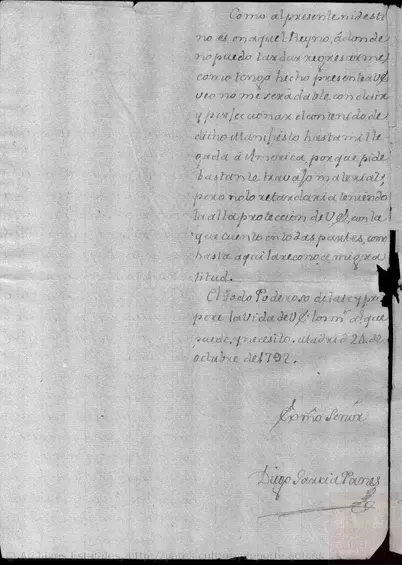 Como al presente mi desti
no es en aquel Reyno, à donde
no puedo tardar regresarme
como tengo hecho presente a VE
veo no me será dable, concluir
y perfeccionar el contenido de
dicho Manifiesto hasta mi lle
gada à America, porque pide
bastante travajo material;
pero no lo retardaria teniendo
la alta proteccion de VE, con la
que cuento en todas partes, como
hasta aqui la reconoce mi gra
titud.
El Todo Poderoso dilate y pros
pere la vida de VE los ms. as. que
puede, y necesito. Madrid 24 de
octubre de 1792.
Exmo. Señor
Diego Garcia Panes